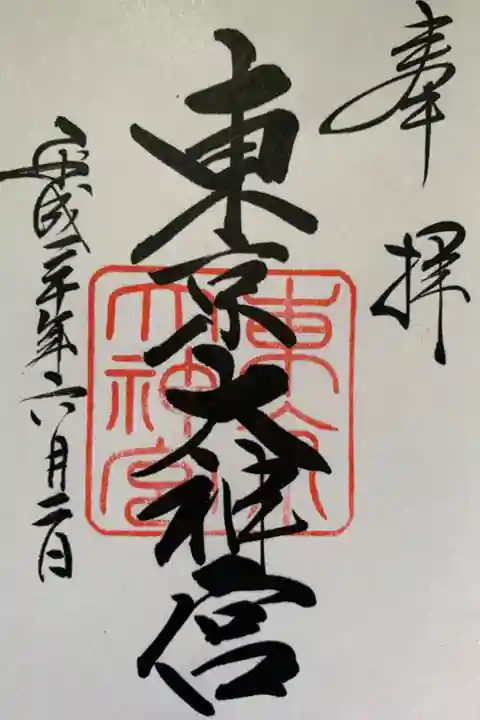 奉拝
東京大神宮
平成二十年六月二日
東京
大神宮